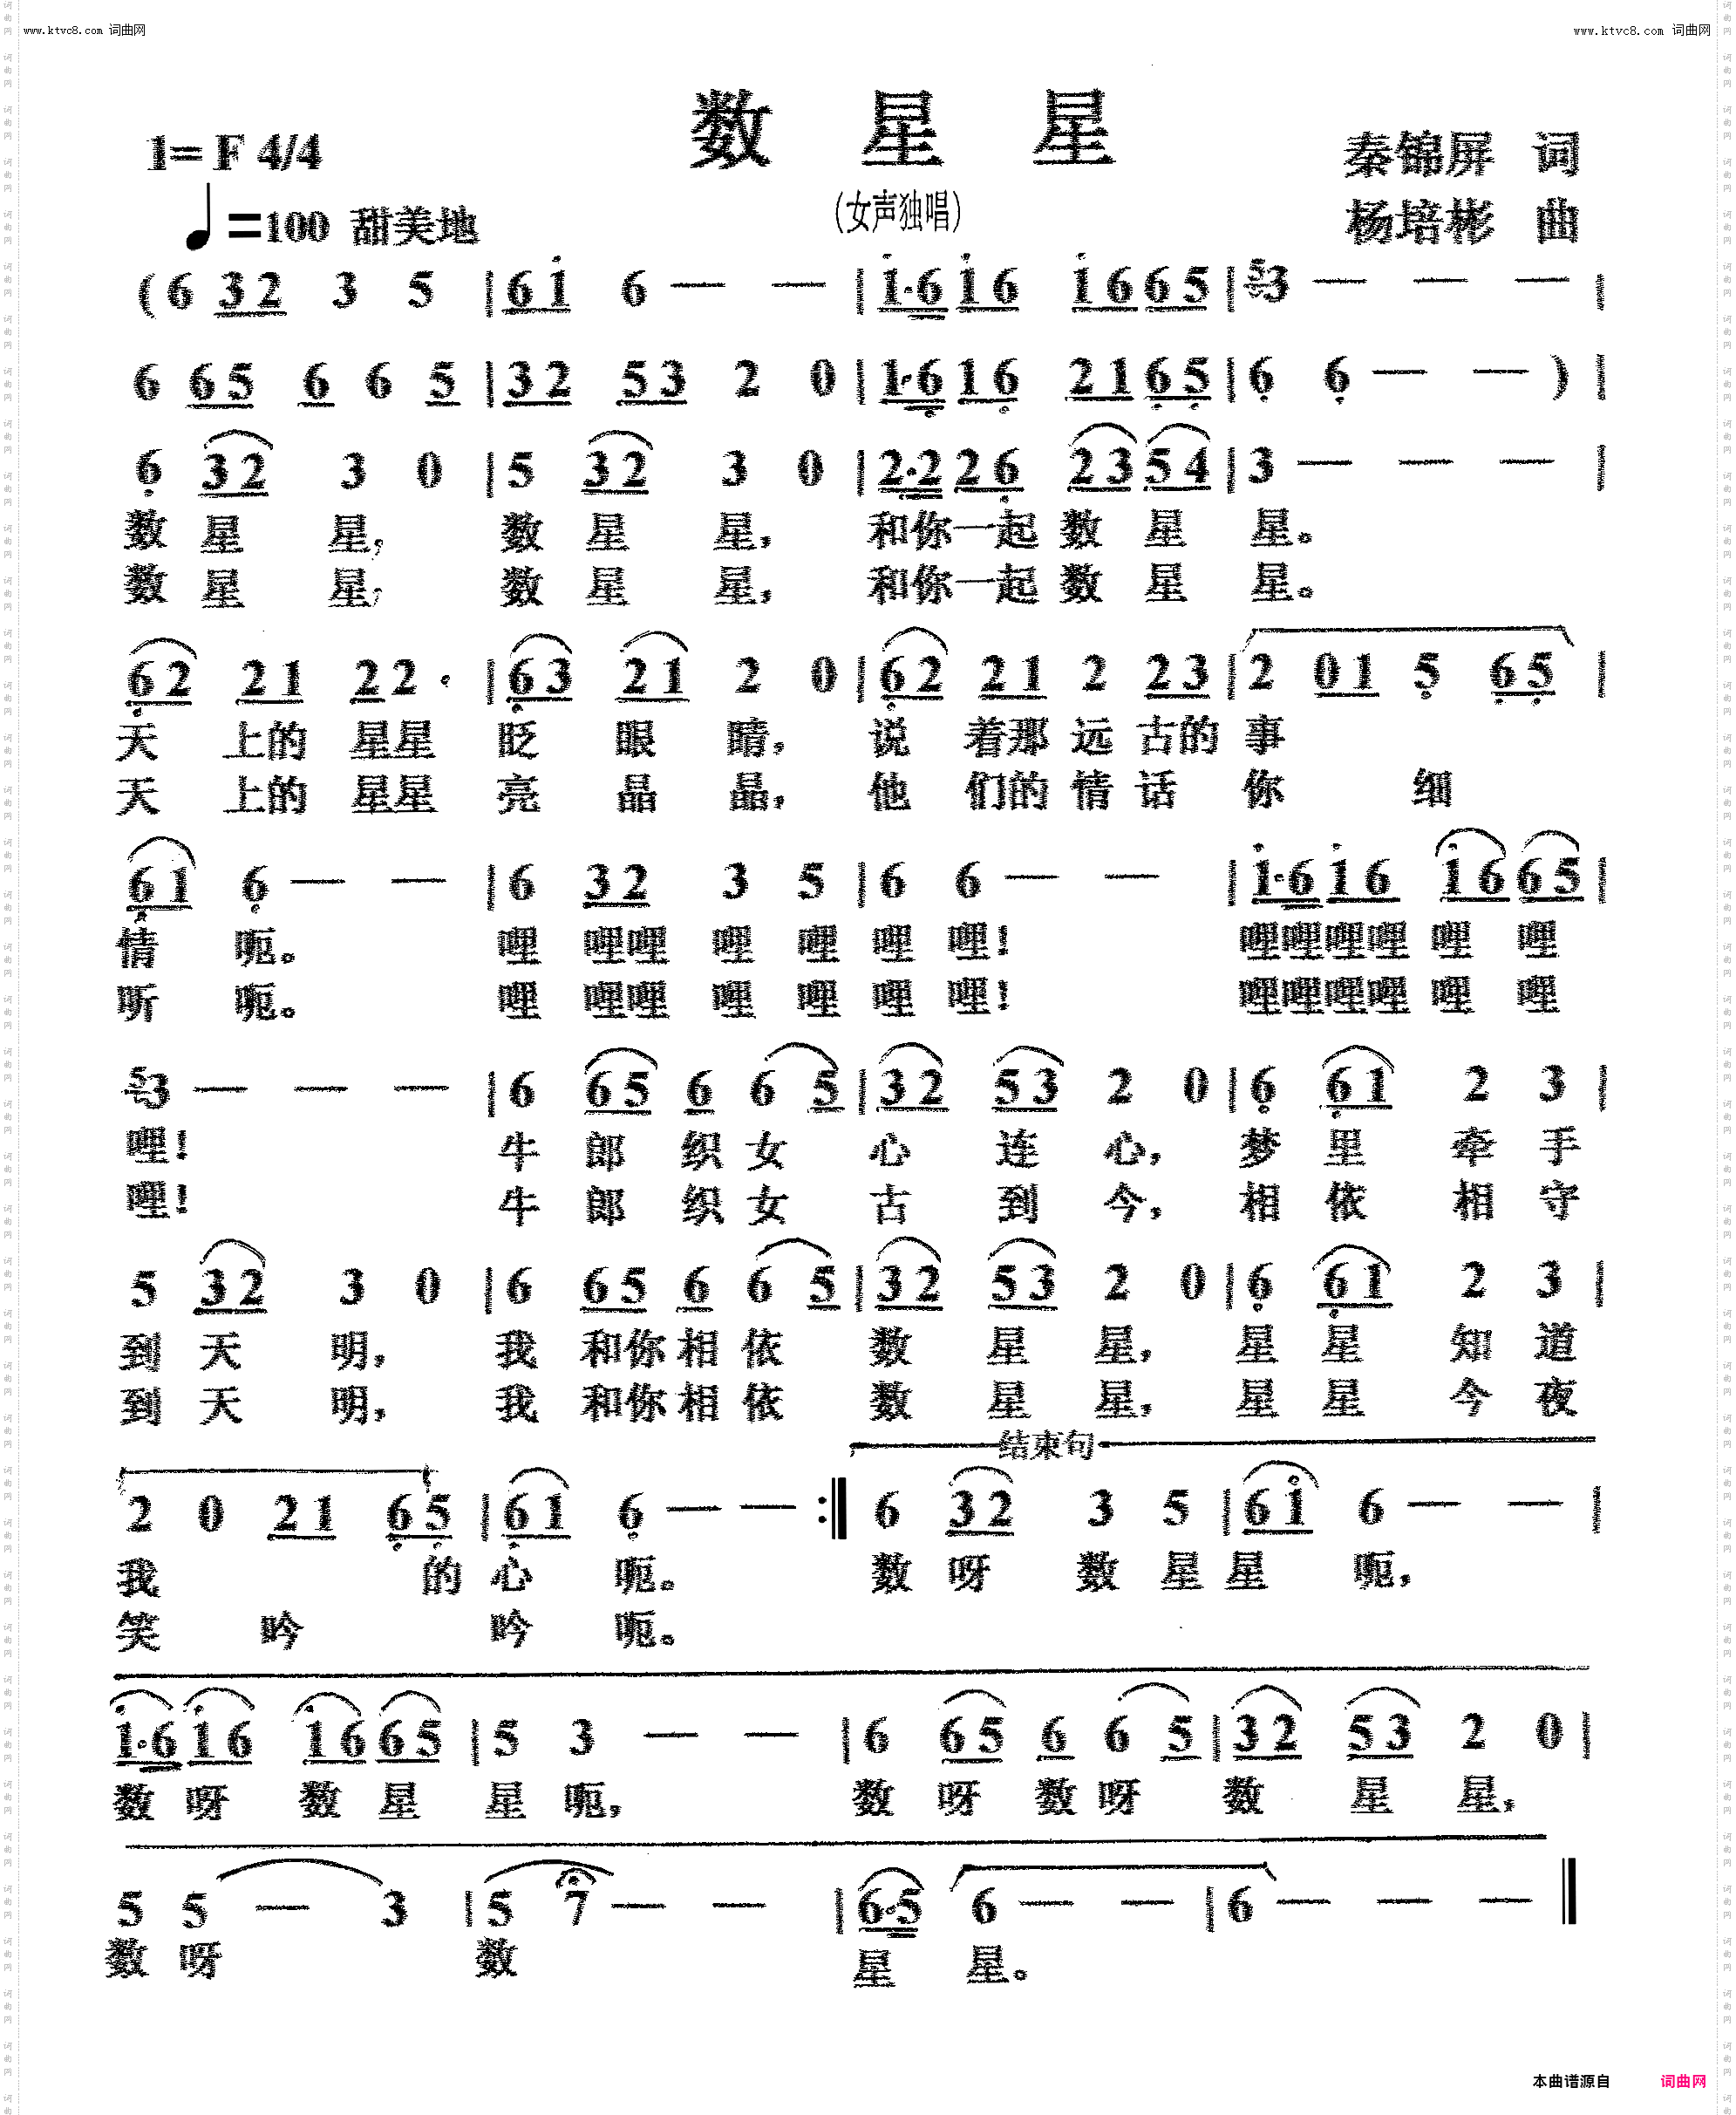 www.ktvc8.com 词曲网
www.ktvc8.com 词曲网
数 星 星
1= F 4/4
秦锦屏 词
(女声独唱)
=100 甜美地
杨培彬 曲
( 6 32 3 5 | 61 6 — — | 1·6 16 16 65 | 53 — — — |
6 65 6 6 5 | 32 53 2 0 | 1·6 16 21 65 | 6 6 — — ) |
6 32 3 0 | 5 32 3 0 | 2·2 26 23 54 | 3 — — — |
数 星 星, 数 星 星, 和你一起 数 星 星。
数 星 星, 数 星 星, 和你一起 数 星 星。
62 21 22 · | 63 21 2 0 | 62 21 2 23 | 2 01 5 65 |
天 上的 星星 眨 眼 睛, 说 着那 远 古的 事
天 上的 星星 亮 晶 晶, 他 们的 情 话 你 细
61 6 — — | 6 32 3 5 | 6 6 — — | 1·6 16 16 65 |
情 呃。 哩 哩哩 哩 哩 哩 哩! 哩哩哩哩 哩 哩
听 呃。 哩 哩哩 哩 哩 哩 哩! 哩哩哩哩 哩 哩
53 — — — | 6 65 6 6 5 | 32 53 2 0 | 6 61 2 3 |
哩! 牛 郎 织 女 心 连 心, 梦 里 牵 手
哩! 牛 郎 织 女 古 到 今, 相 依 相 守
5 32 3 0 | 6 65 6 6 5 | 32 53 2 0 | 6 61 2 3 |
到 天 明, 我 和你 相 依 数 星 星, 星 星 知 道
到 天 明, 我 和你 相 依 数 星 星, 星 星 今 夜
结束句
2 0 21 65 | 61 6 — — :| 6 32 3 5 | 61 6 — — |
我 的 心 呃。 数 呀 数 星 星 呃,
笑 吟 吟 呃。
1·6 16 16 65 | 5 3 — — | 6 65 6 6 5 | 32 53 2 0 |
数 呀 数 星 星 呃, 数 呀 数 呀 数 星 星,
5 5 — 3 | 5 7 — — | 6·5 6 — — | 6 — — — ||
数 呀 数 星 星。
本曲谱源自 词曲网